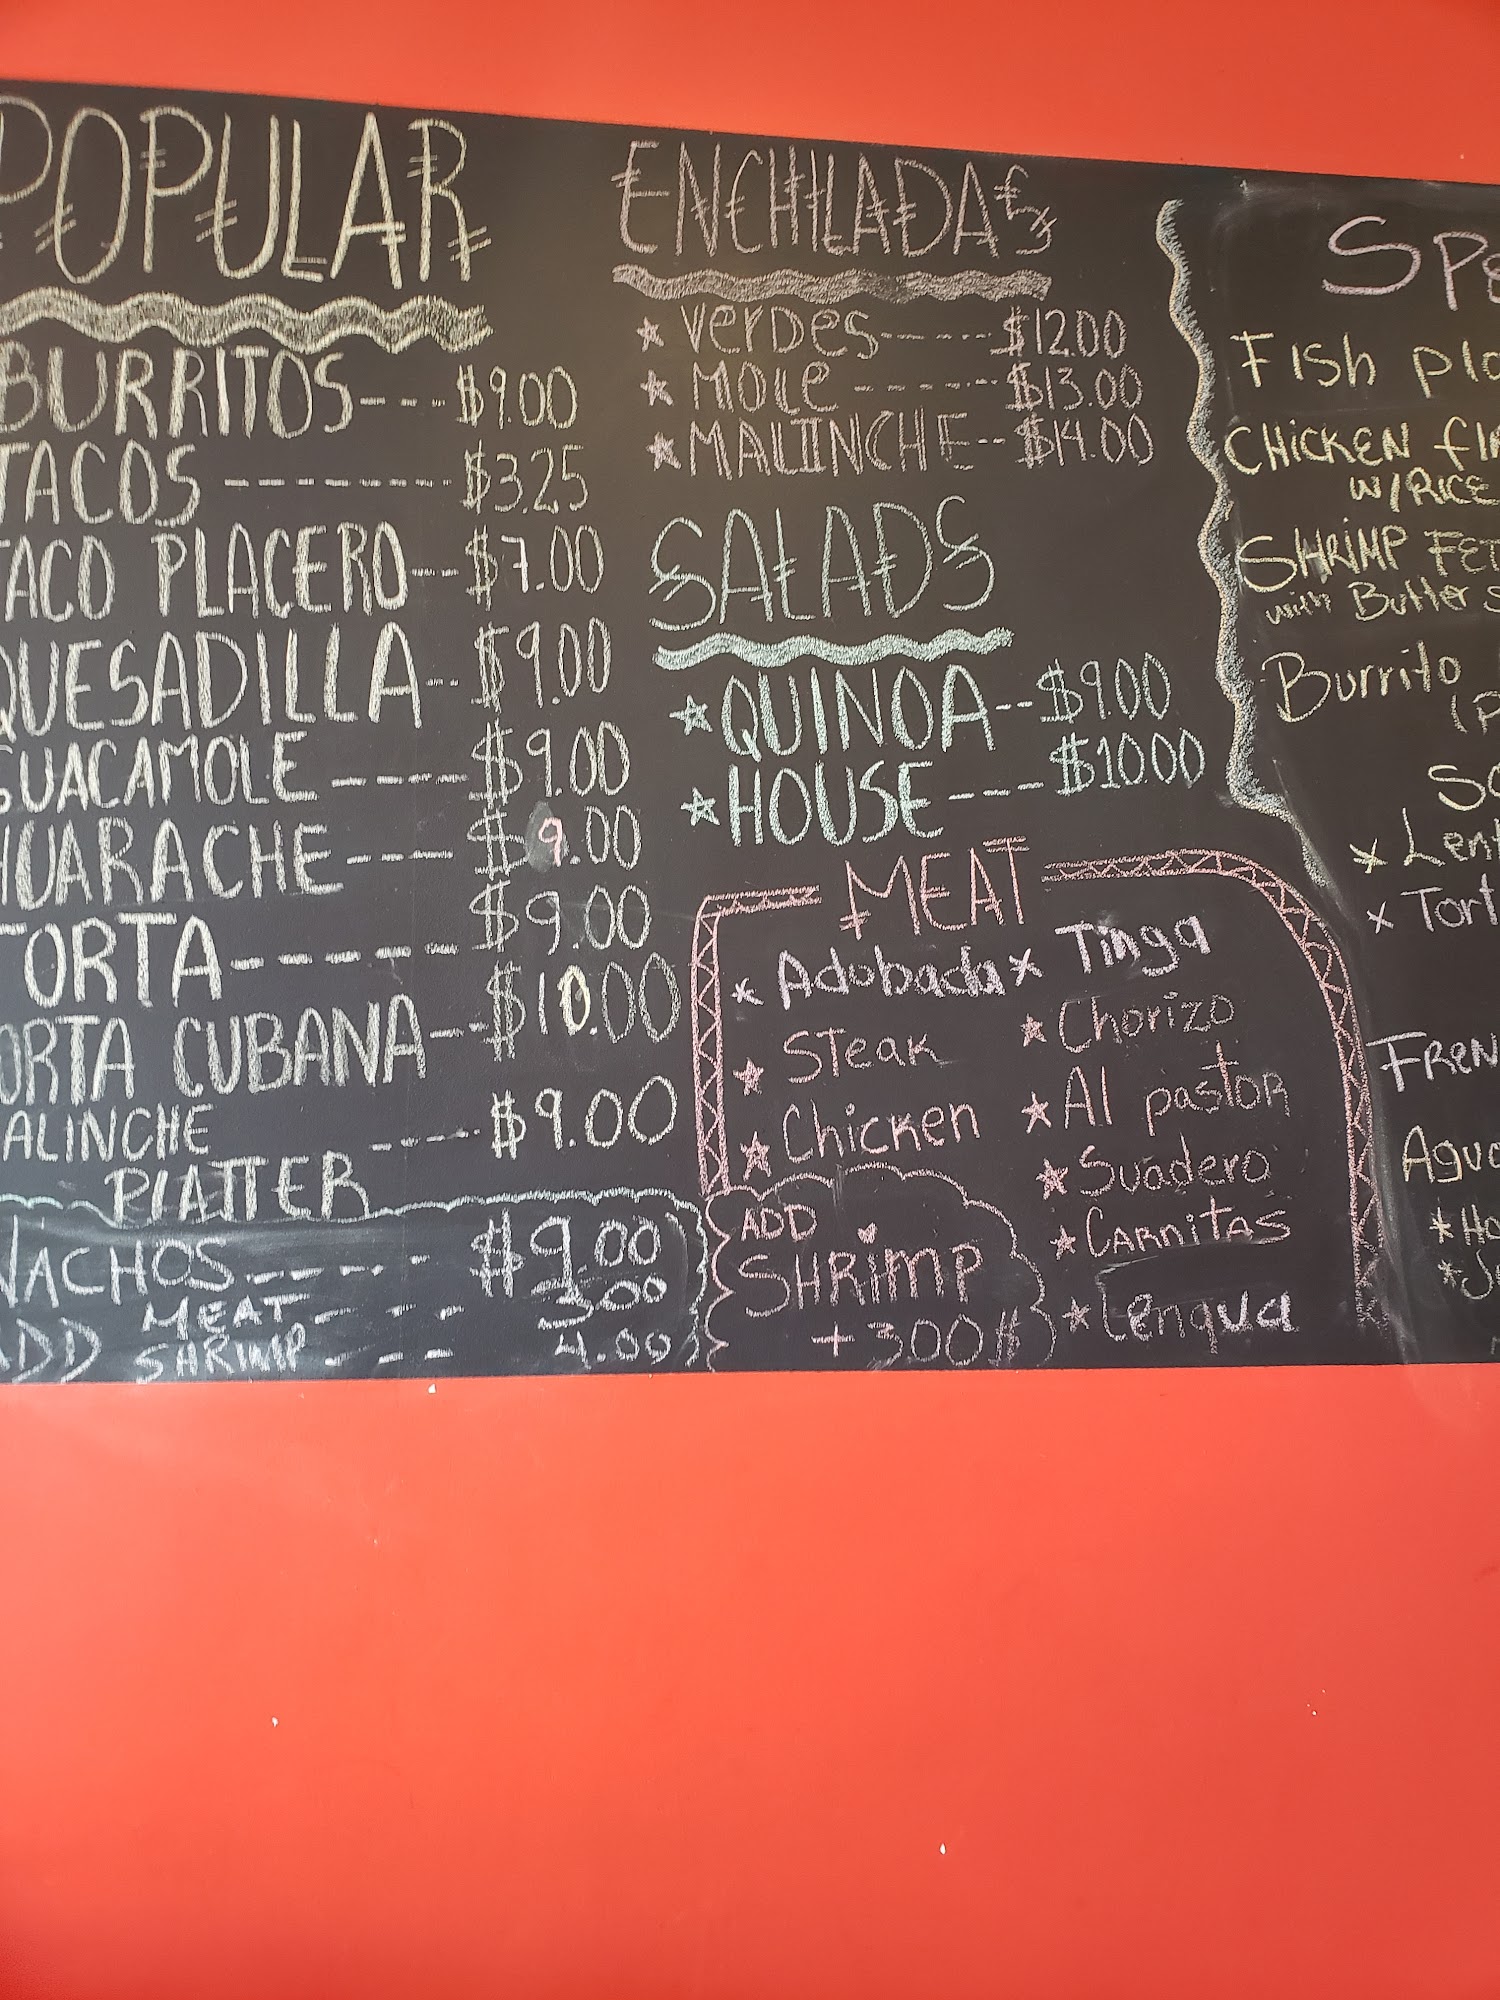 POPULAR
BURRITOS---$9.00
TACOS--------$3.25
TACO PLACERO--$7.00
QUESADILLA--$9.00
GUACAMOLE----$9.00
HUARACHE---$9.00
TORTA------$9.00
ORTA CUBANA--$10.00
ALINCHE
PLATTER ----$9.00
NACHOS------$9.00
MEAT---- 3.00
ADD SHRIMP--- 4.00
ENCHILADAS
VERDES-----$12.00
MOLE------$13.00
MALINCHE--$14.00
SALADS
QUINOA--$9.00
HOUSE----$10.00
MEAT
Adobada
Steak
Chicken
Tinga
Chorizo
Al pastor
Suadero
CARNITAS
Lengua
ADD
SHRIMP
+300$
Spe
Fish pla
CHICKEN
W/RICE
SHRIMP FET
with Butter S
Burrito
(P
So
Lent
Tort
FREN
Agua